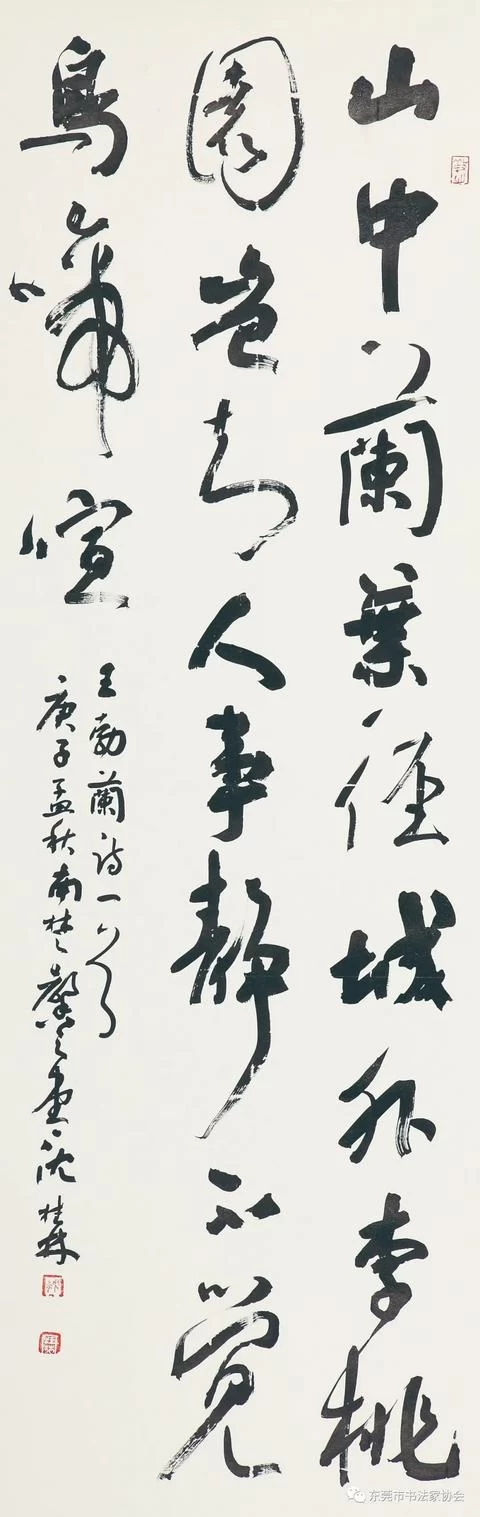 山中蘭葉徑城外李桃
園豈知人事靜不覺
鳥啼喧
王勃蘭詩一首
庚子孟秋南楚沈桂林
东莞市书法家协会